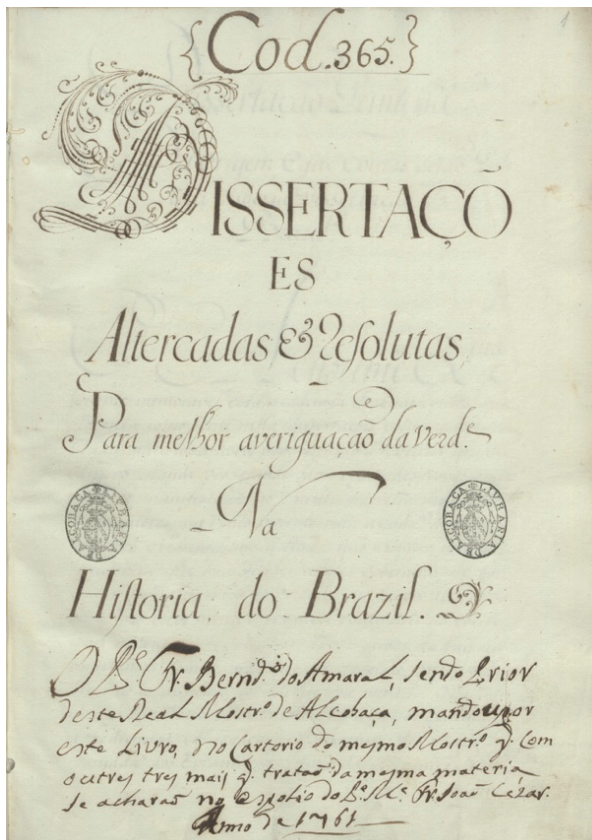 1
{Cod. 365.}
DISSERTAÇÕ
ES
Altercadas & Resolutas
Para melhor averiguação da Verd.e
Na
Historia do Brazil.
LIVRARIA DE ALCOBAÇA
LIVRARIA DE ALCOBAÇA
O P.e Fr. Bernd.o do Amaral, sendo Prior
deste Real Mostr.o de Alcobaça, mandou por
este Livro, no Cartorio do mesmo Mostr.o q. com
outros tres mais q. tratão da mesma materia,
se acharaõ no espolio do P.e M.e Fr. João Cezar.
Anno de 1761